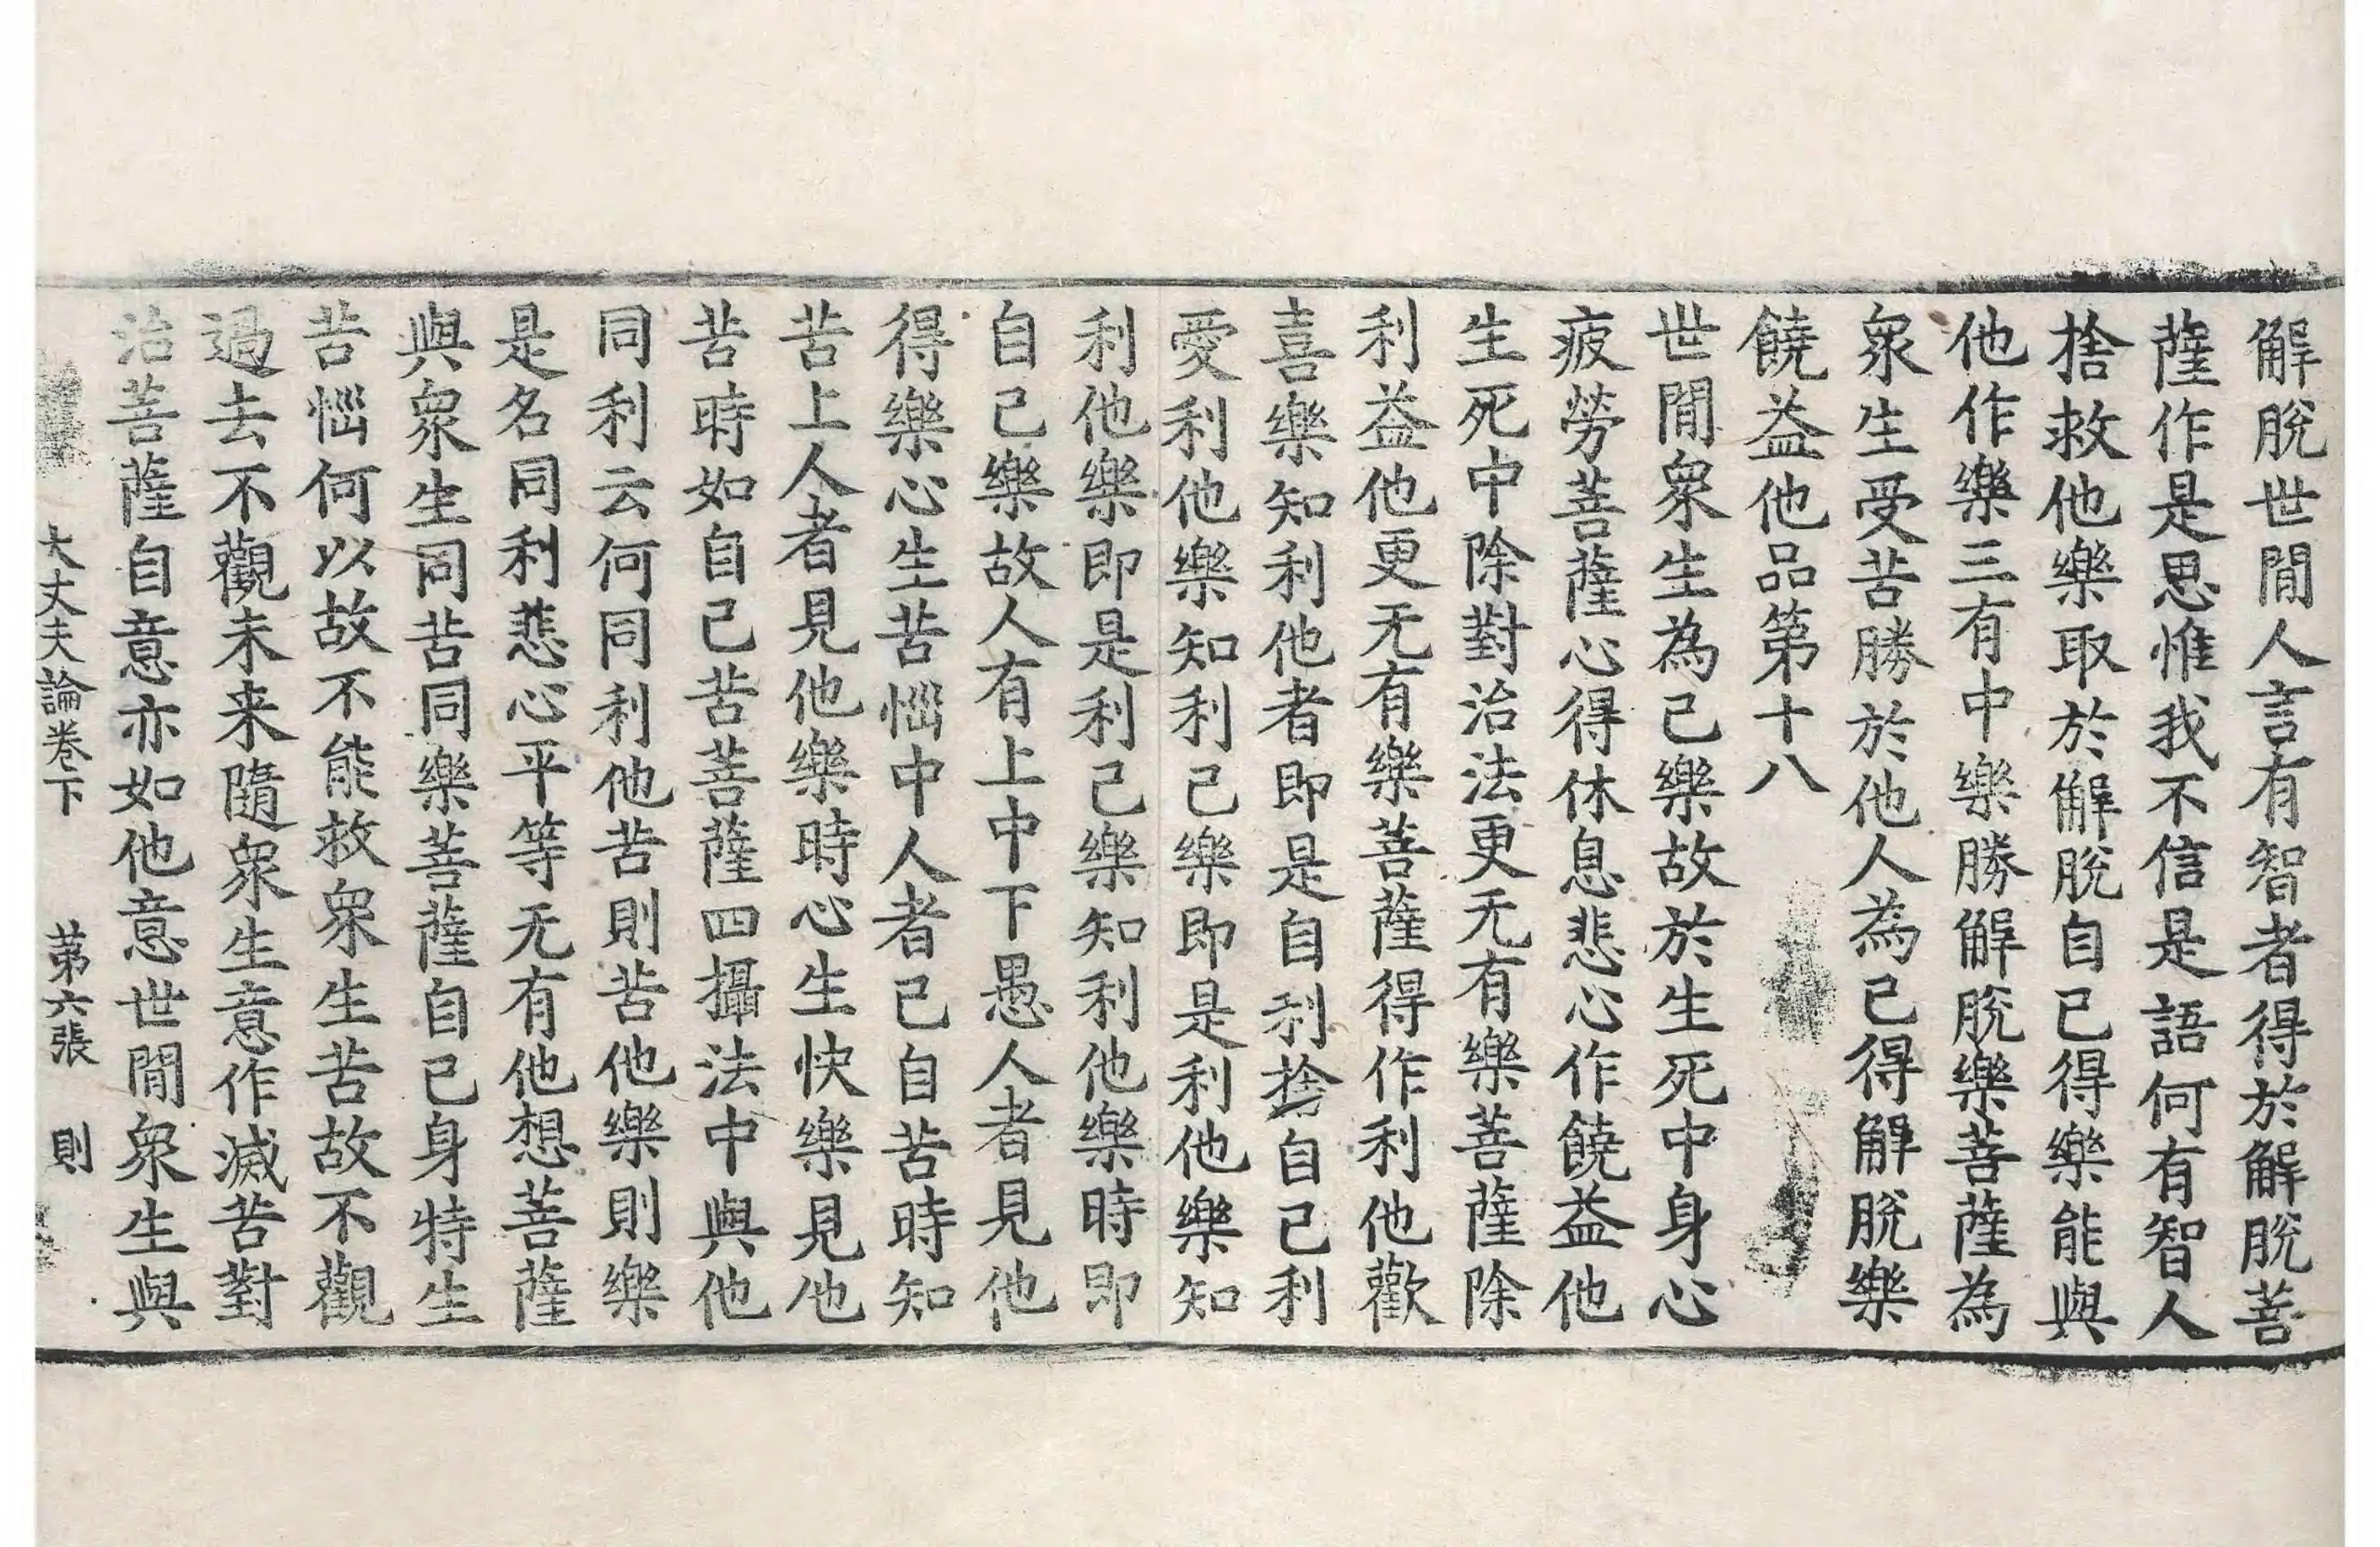 解脫世間人言有智者得於解脫菩
薩作是思惟我不信是語何有智人
捨救他樂取於解脫自已得樂能與
他作樂三有中樂勝解脫樂菩薩為
衆生受苦勝於他人為已得解脫樂
饒益他品第十八
世間衆生為已樂故於生死中身心
疲勞菩薩心得休息悲心作饒益他
生死中除對治法更无有樂菩薩除
利益他更无有樂菩薩得作利他歡
喜樂知利他者即是自利捨自己利
愛利他樂知利己樂即是利他樂知
利他樂即是利己樂知利他樂時即
自己樂故人有上中下愚人者見他
得樂心生苦惱中人者已自苦時知
苦上人者見他樂時心生快樂見他
苦時如自己苦菩薩四攝法中與他
同利云何同利他苦則苦他樂則樂
是名同利悲心平等无有他想菩薩
與衆生同苦同樂菩薩自已身特生
苦惱何以故不能救衆生苦故不觀
過去不觀未来隨衆生意作滅苦對
治菩薩自意亦如他意世間衆生與
大丈夫論卷下 第六張 則